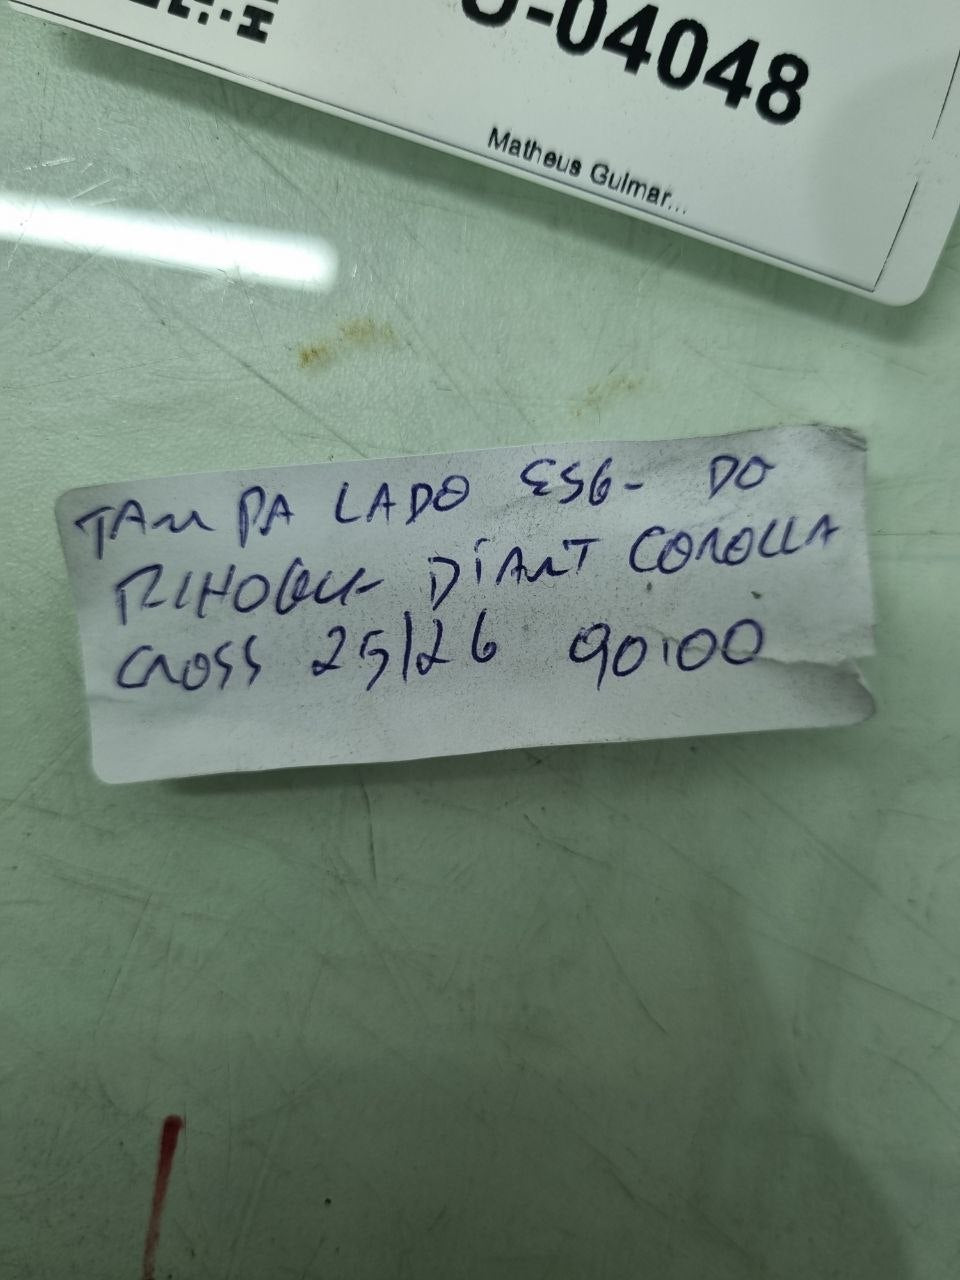 -04048
Matheus Guimar...
TAMPA LADO ESG- DO
DIANT COROLLA
CROSS 25/26 90.00